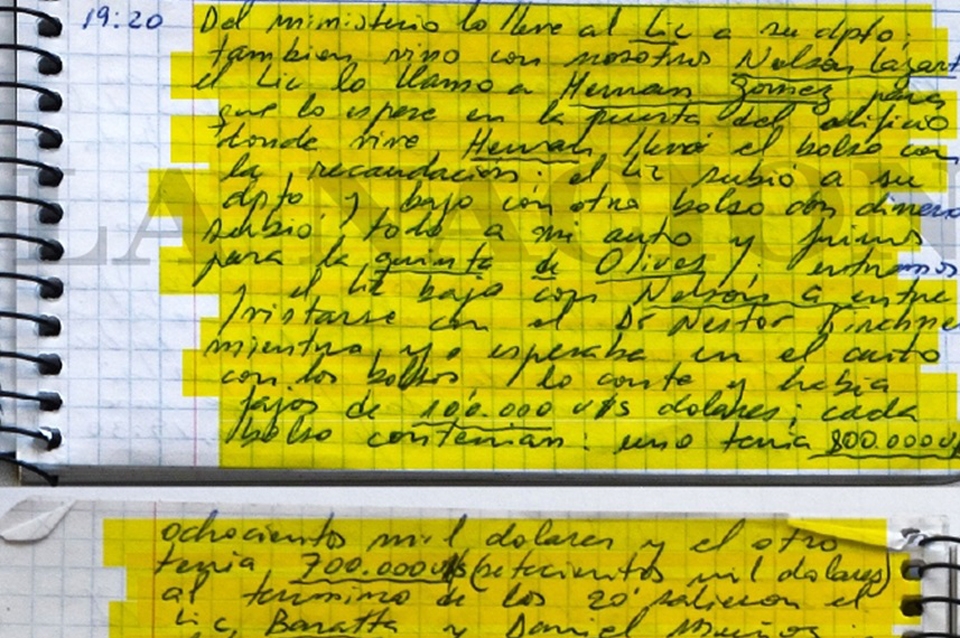 19:20 Del ministerio lo lleve al Lic a su dpto;
tambien vino con nosotros Nelson Lazart
el Lic lo llamo a Hernan Gomez para
que lo espere en la puerta del edificio
donde vive, Hernan llevó el bolso con
la recaudación; el Lic subió a su
dpto y bajo con otro bolso con dinero
subió todo a mi auto y fuimos
para la quinta de Olivos; entramos
y el Lic bajo con Nelson a entre
/vistarse con el Dr Nestor Kirchne
mientras yo esperaba en el auto
con los bolsos, lo conte y habia
fajos de 100.000 u$s dolares; cada
bolso contenian: uno tenia 800.000 u$
ochocientos mil dolares y el otro
tenia 700.000 u$s (setecientos mil dolares)
al termino de los 20' salieron el
Lic, Baratta y Daniel Muñoz
LA NACION